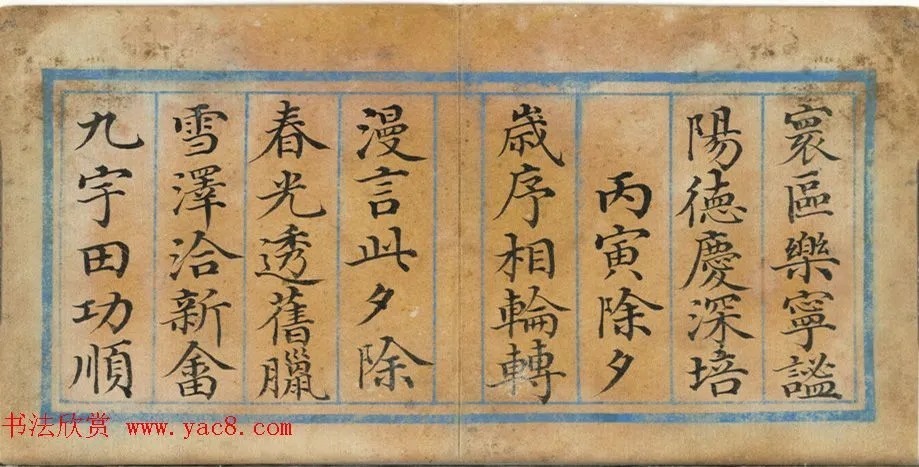 寰區樂寧謐
陽德慶深培
丙寅除夕
歲序相輪轉
漫言此夕除
春光透舊臘
雪澤洽新畬
九宇田功順
书法欣赏 www.yac8.com